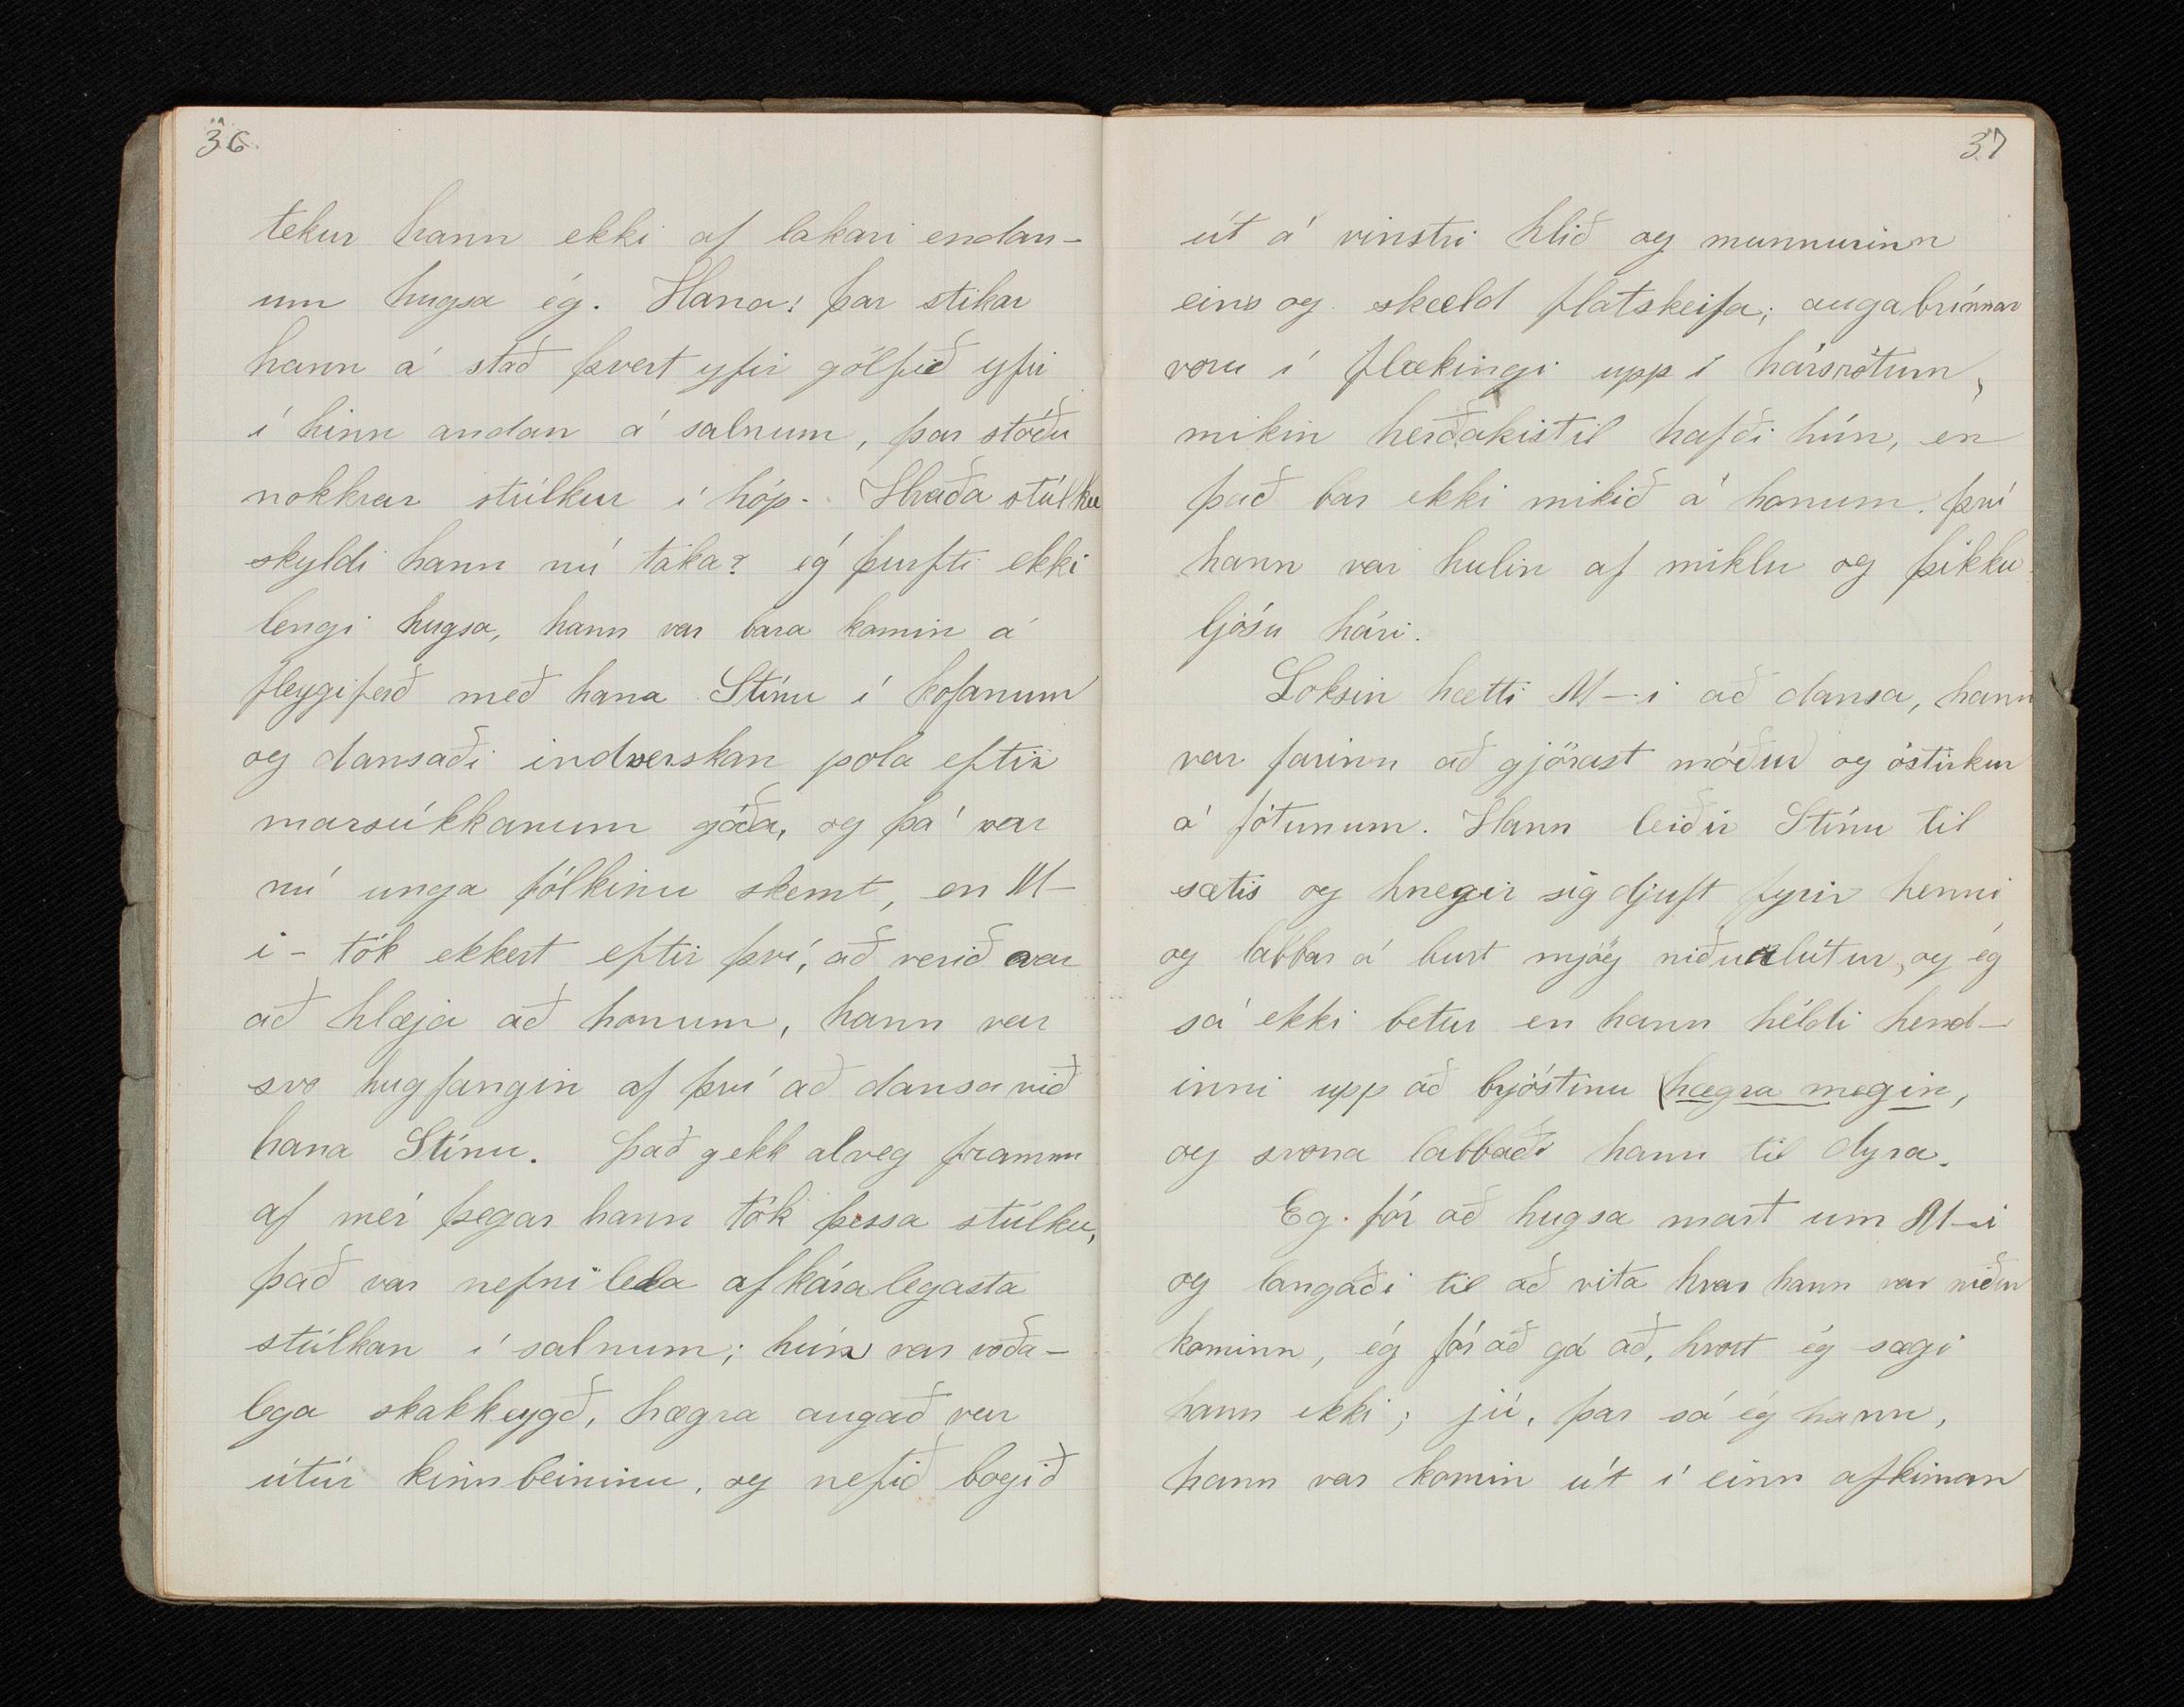 36
tekur hann ekki af lakari endan-
um hugsa ég. Hana! þar stikar
hann á stað þvert yfir gólfið yfir
í hinn andan á salnum, þar stóðu
nokkrar stúlkur í hóp. Hvaða stúlku
skyldi hann nú taka? ég þurfti ekki
lengi hugsa, hann var bara komin á
fleygiferð með hana Stínu í kofanum
og dansaði indverskan pola eftir
marsúkkanum góða, og þá var
nú unga fólkinu skemt, en M-
i- tók ekkert eftir því, að verið var
að hlæja að honum, hann var
svo hugfangin af því að dansa við
hana Stínu. það gekk alveg framm
af mér þegar hann tók þessa stúlku,
það var nefnileda afkáralegasta
stúlkan í salnum; hún var voða-
lega skakkeygð, hægra augað var
útúr kinnbeininu, og nefið bogið
37
út á vinstri hlið og munnurinn
eins og skæld flatskeifa; augabrúnnar
voru í flækingi upp í hársrótum,
mikin herðakistil hafði hún, en
það bar ekki mikið á honum. því
hann var hulin af miklu og þikku
ljósu hári.
Loksin hætti M-i að dansa, hann
var farinn að gjörast móður og óstirkur
á fótunum. Hann leiðir Stínu til
sætis og hnegir sig djuft fyrir henni
og labbar á burt mjög niðurlútur, og ég
sá ekki betur en hann héldi hend-
inni upp að brjóstinu (hægra megin,
og svona labbaði hann til dyra.
Eg. fór að hugsa mart um M-i
og langaði til að vita hvar hann var niður
kominn, ég fór að gá að, hvort ég sægi
hann ekki; jú, þar sá ég hann,
hann var komin út í einn afkiman